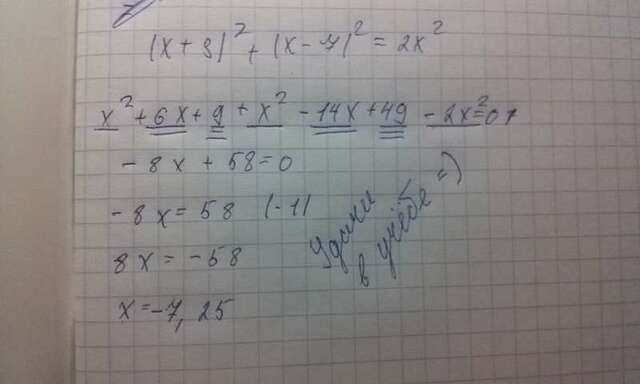 (x + 3)² + (x - 7)² = 2x²
x² + 6x + 9 + x² - 14x + 49 - 2x² = 0
- 8x + 58 = 0
- 8x = 58 (-1)
8x = -58
x = -7,25
Удачи
в учёбе =)